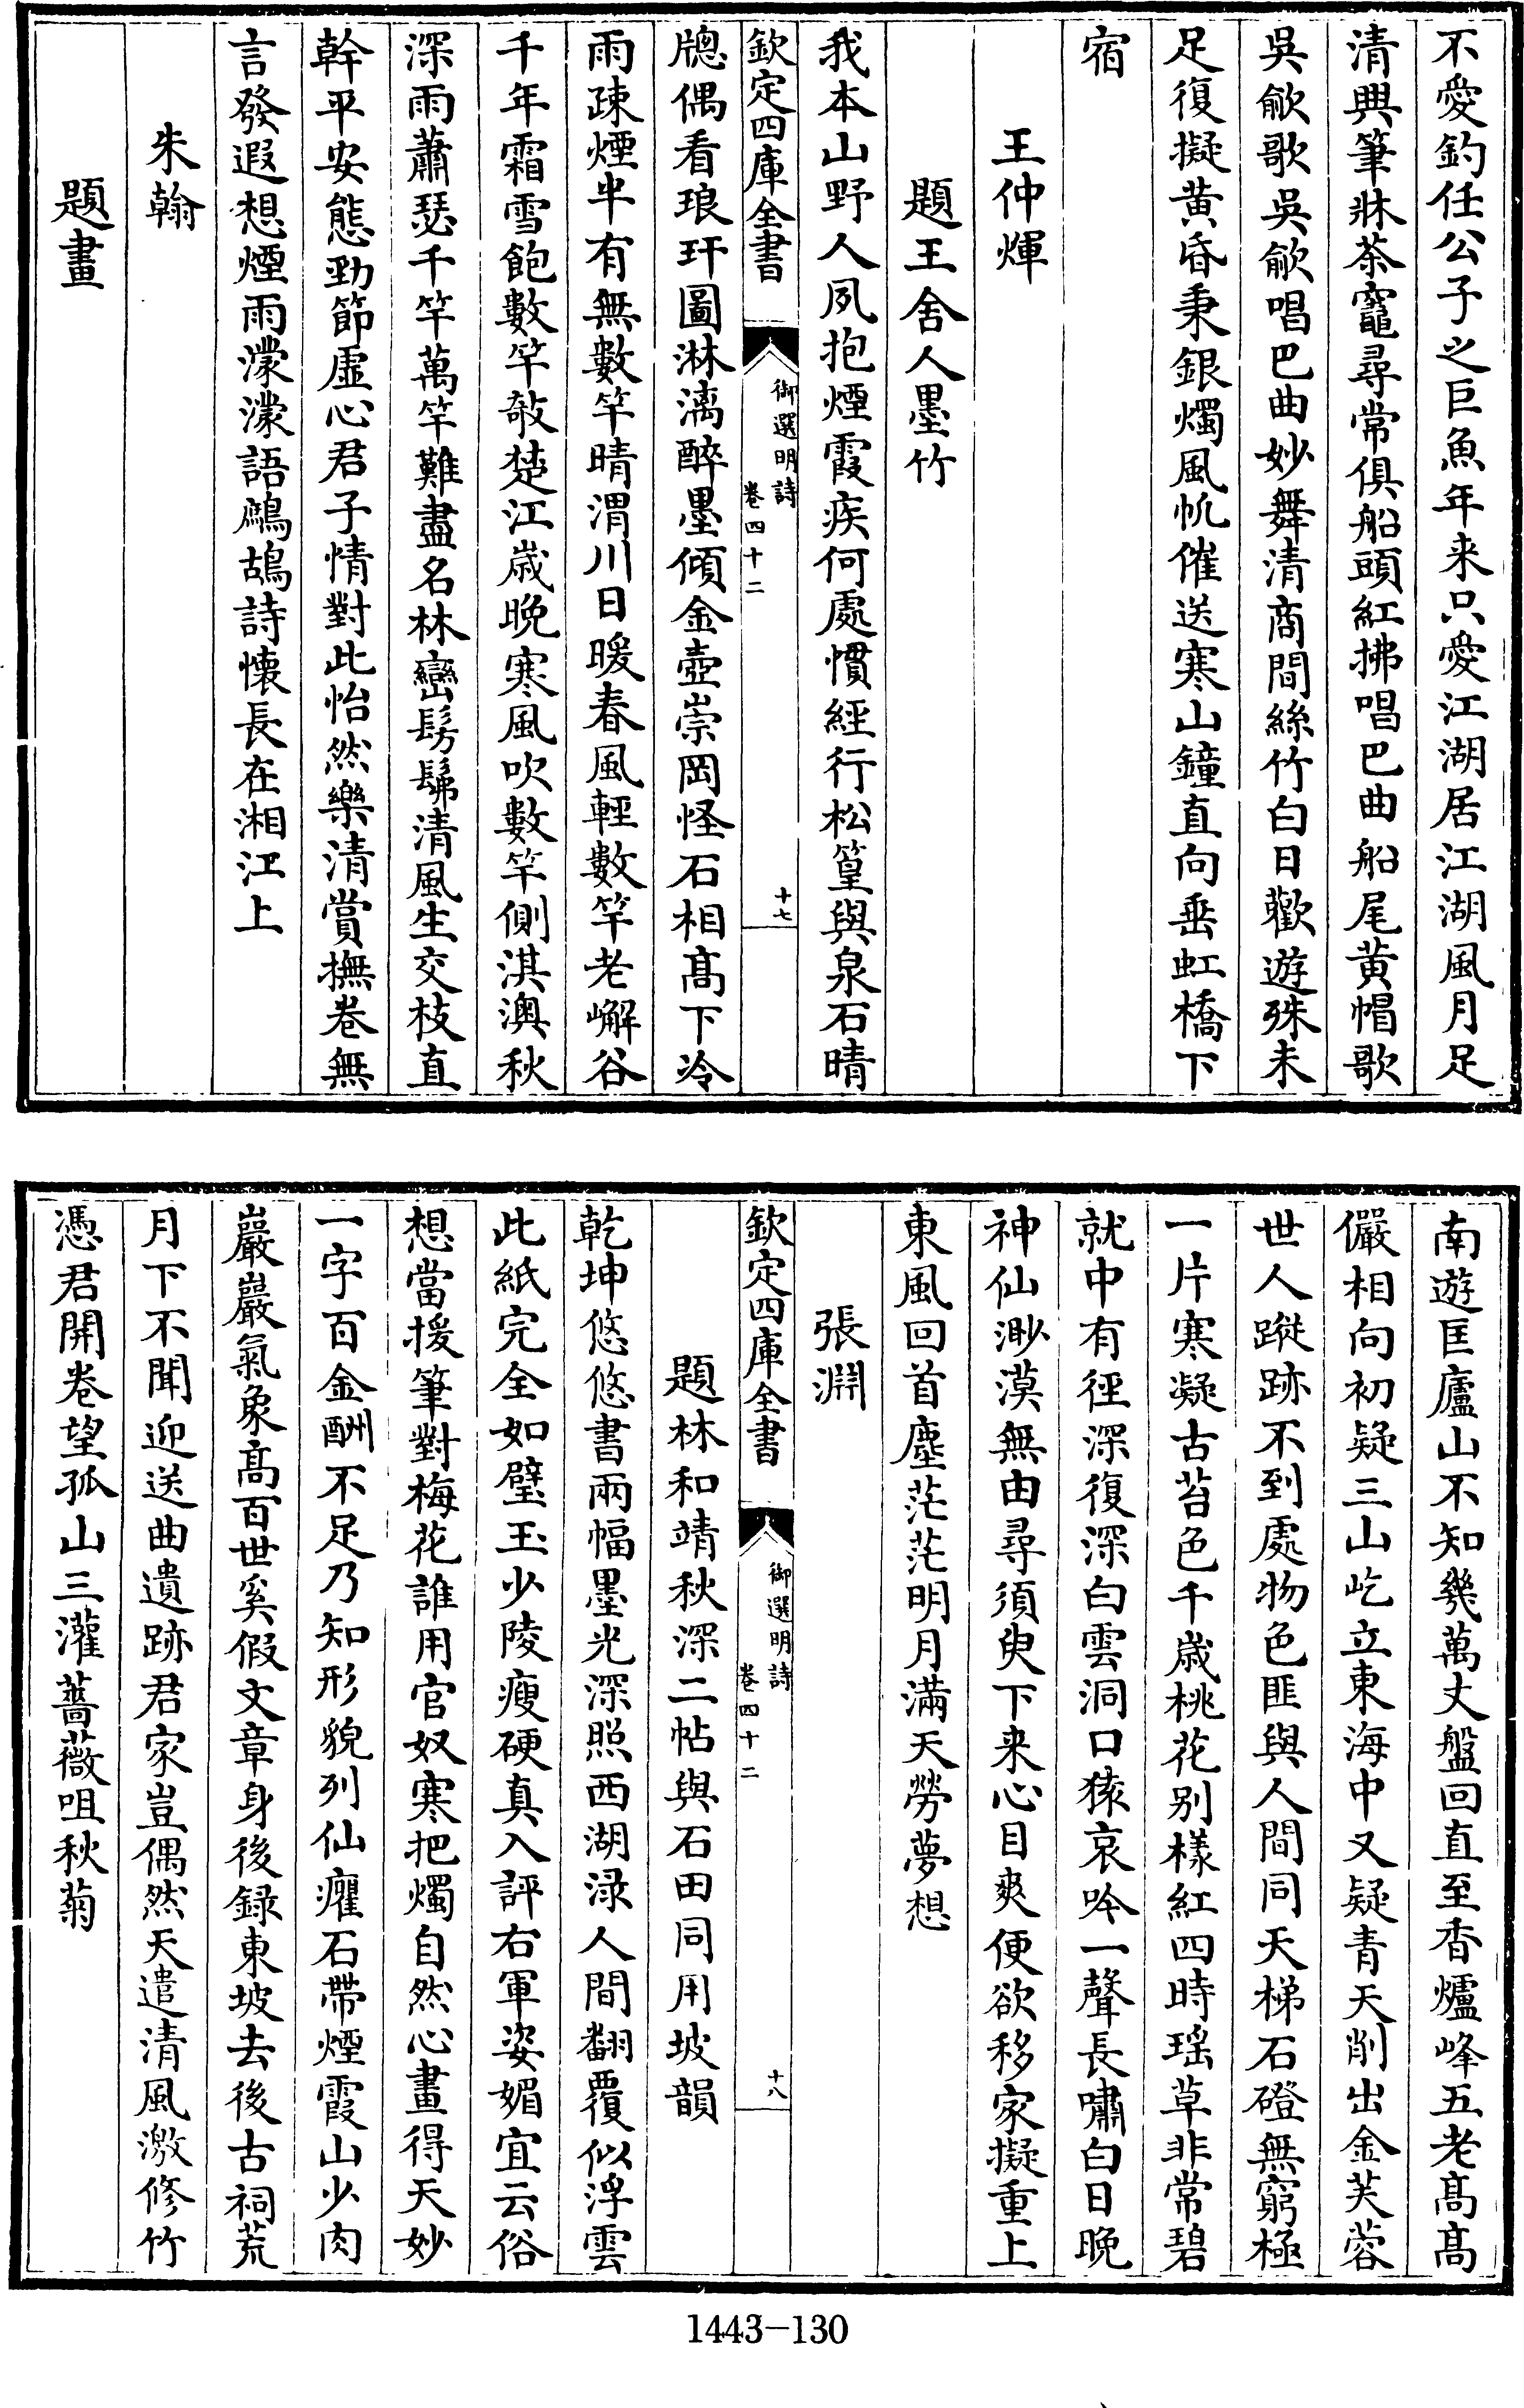 不愛釣任公子之巨魚年来只愛江湖居江湖風月足
清興筆牀茶竈尋常俱船頭紅拂唱巴曲船尾黄帽歌
吳歈歌吳歈唱巴曲妙舞清商間絲竹白日歡遊殊未
足復擬黄昏秉銀燭風帆催送寒山鐘直向垂虹橋下
宿
王仲煇
題王舍人墨竹
我本山野人夙抱煙霞疾何處慣經行松篁與泉石晴
欽定四庫全書
御選明詩
卷四十二
十七
牕偶看琅玕圖淋漓醉墨傾金壺崇岡怪石相髙下冷
雨疎煙半有無數竿晴渭川日暖春風輕數竿老嶰谷
千年霜雪飽數竿敧楚江歲晩寒風吹數竿側淇澳秋
深雨蕭瑟千竿萬竿難盡名林巒髣髴清風生交枝直
幹平安態勁節虛心君子情對此怡然樂清賞撫卷無
言發遐想煙雨濛濛語鷓鴣詩懐長在湘江上
朱翰
題畫
南遊匡廬山不知幾萬丈盤回直至香爐峰五老髙髙
儼相向初疑三山屹立東海中又疑青天削出金芙蓉
世人蹤跡不到處物色匪與人間同天梯石磴無窮極
一片寒凝古苔色千歲桃花别様紅四時瑶草非常碧
就中有徑深復深白雲洞口猿哀吟一聲長嘯白日晩
神仙渺漠無由尋須臾下来心目爽便欲移家擬重上
東風回首塵茫茫明月滿天勞夢想
張淵
欽定四庫全書
御選明詩
卷四十二
十八
題林和靖秋深二帖與石田同用坡韻
乾坤悠悠書兩幅墨光深照西湖渌人間翻覆似浮雲
此紙完全如璧玉少陵瘦硬真入評右軍姿媚宜云俗
想當援筆對梅花誰用官奴寒把燭自然心畫得天妙
一字百金酬不足乃知形貌列仙癯石帶煙霞山少肉
巖巖氣象髙百世奚假文章身後録東坡去後古祠荒
月下不聞迎送曲遺跡君家豈偶然天遣清風激修竹
憑君開卷望孤山三灌薔薇咀秋菊
1443-130